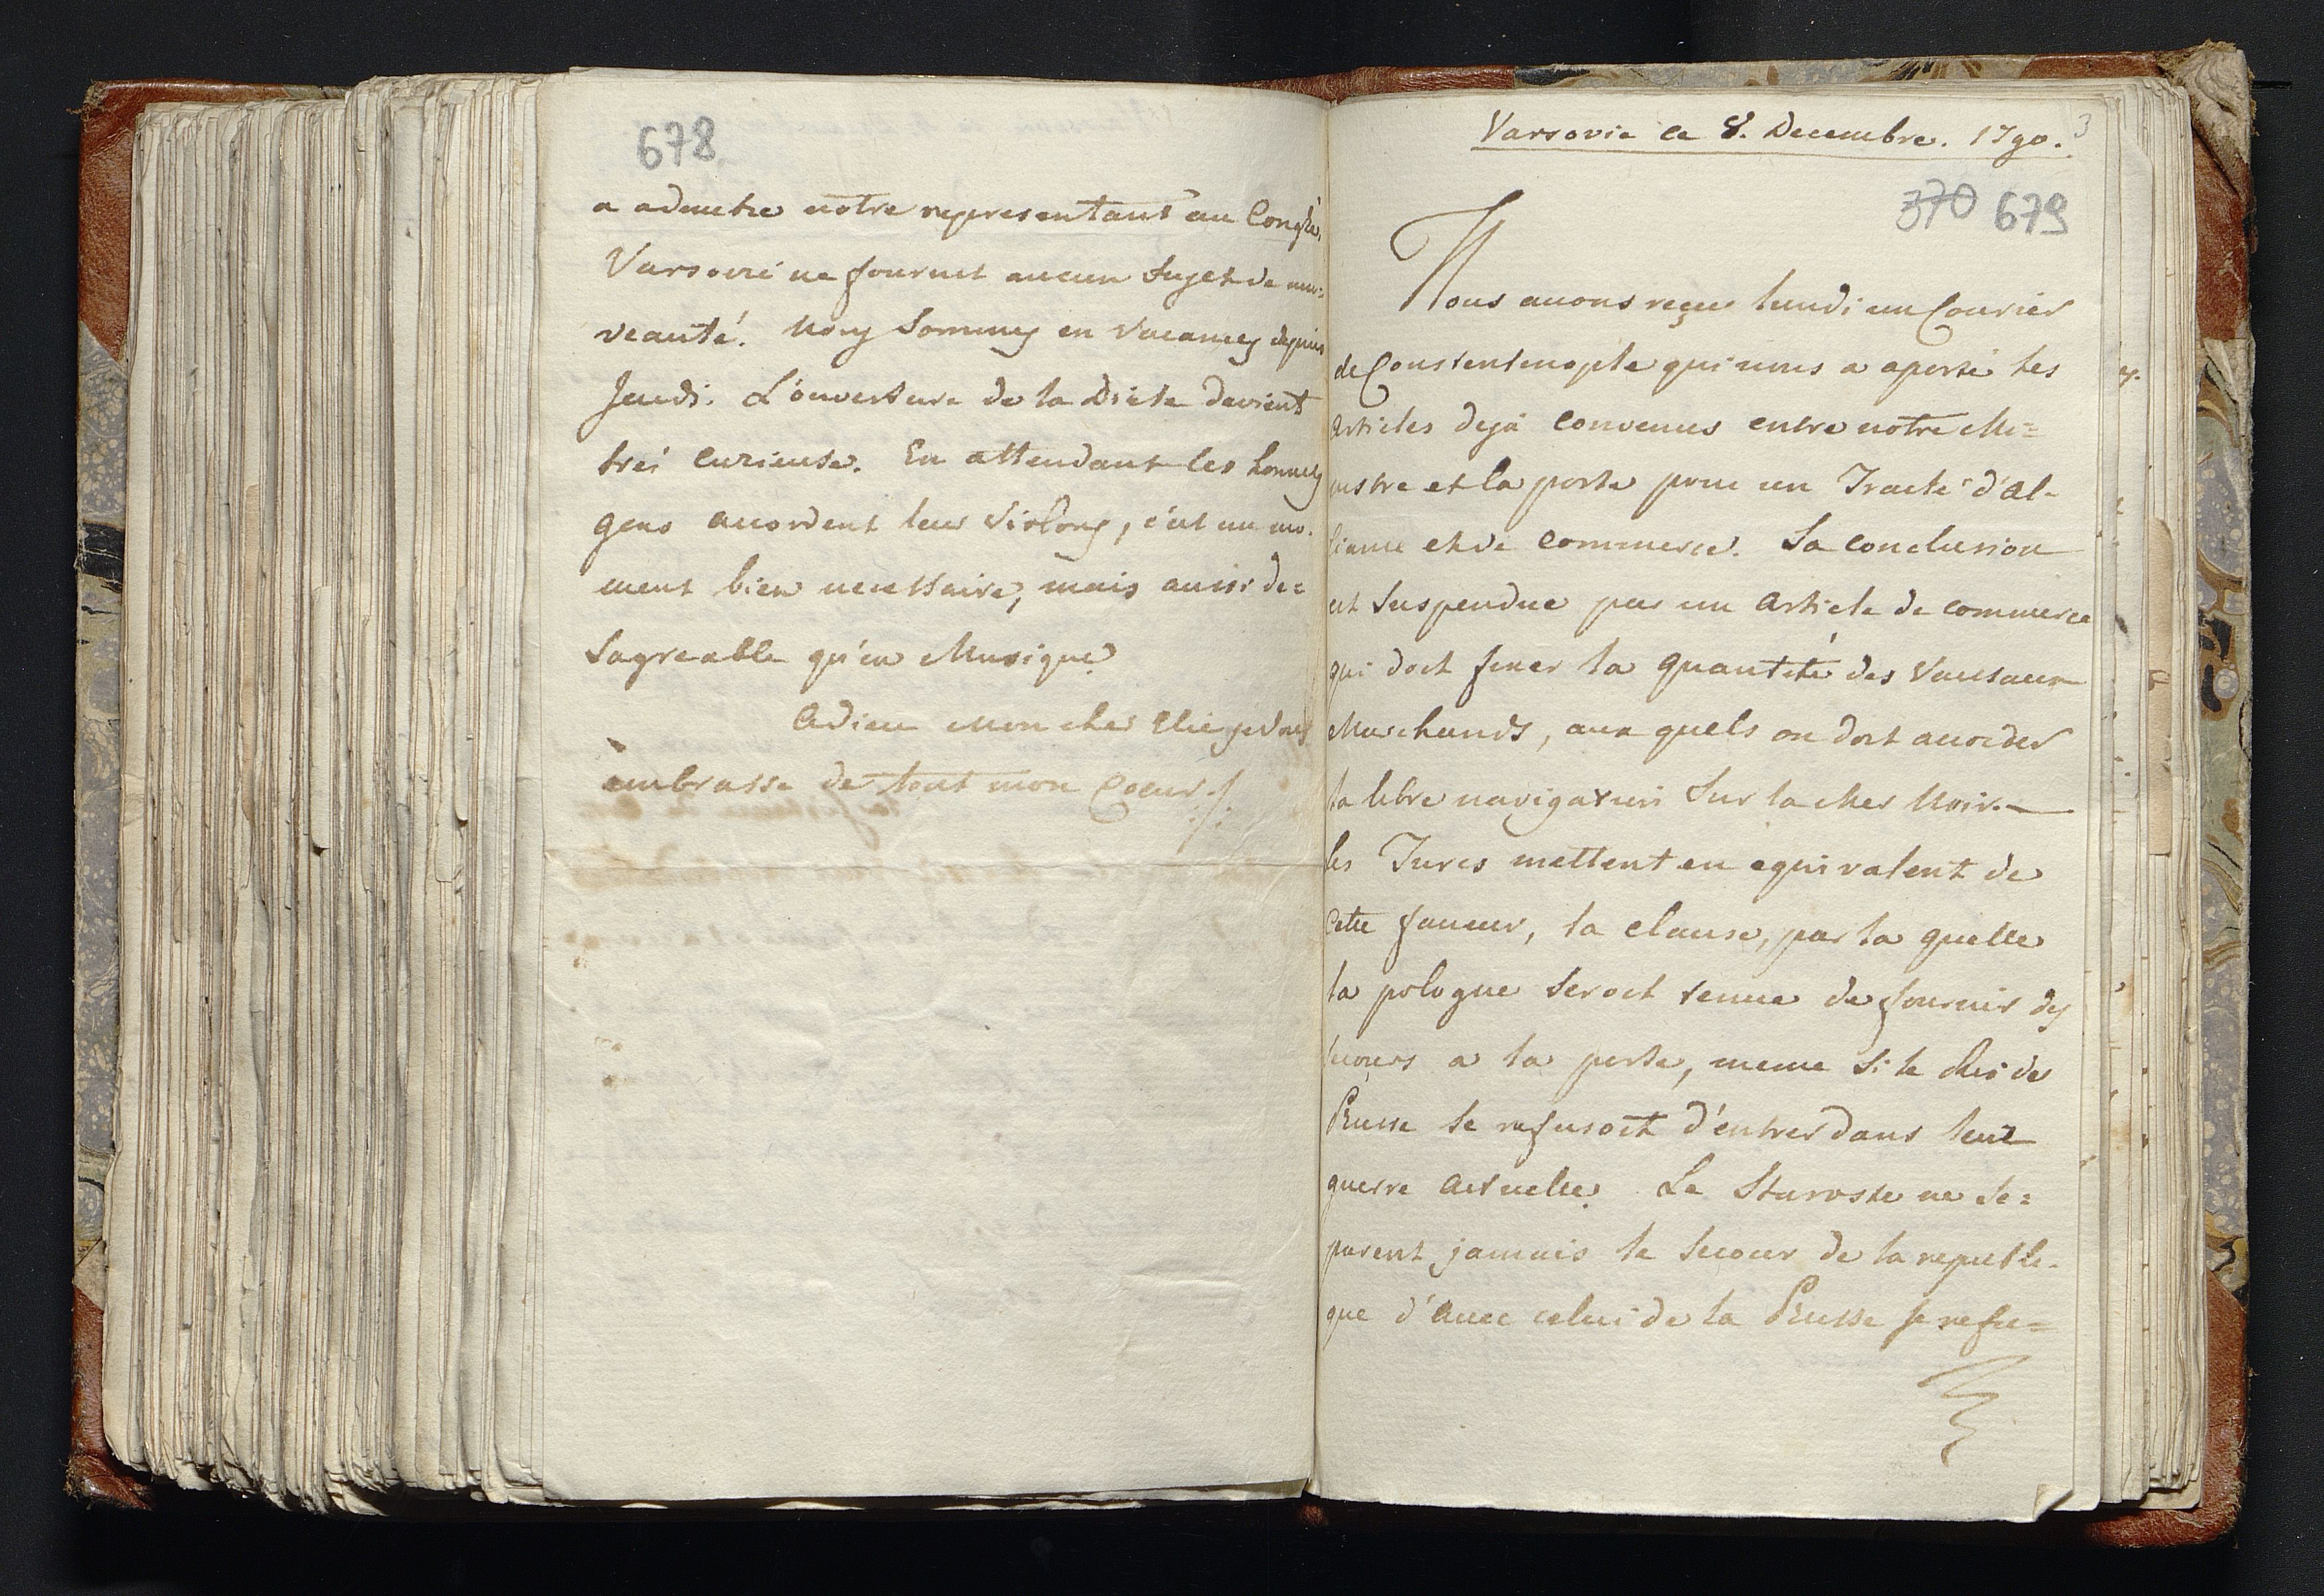 678
a admettre notre representant au Congrès,
Varsovie ne fournit aucun Sujet de nou=
veauté. Nous Sommes en Vacances depuis
Jeudi. L'ouverture de la Diète devient
trés curieuse. En attendant les honnetes
gens accordent leur Violons, c'est un mo-
ment bien necessaire, mais aussi de=
sagreable qu'en Musique.
Adieu Mon cher Elie je Vous
embrasse de tout mon Coeur ./.
Varsovie ce 8. Decembre. 1790.
3
370 679
Nous avons reçu lundi un Courier
de Constentinople qui nous a aporté les
Articles dejà convenus entre notre Mi=
nistre et la porte pour un Traité d'al-
liance et de commerce. La conclusion
est Suspendue par un Article de commerce
qui doit fixer la quantité des Vaissaux
Marchands, aux quels on doit accorder
la libre navigation Sur la Mer Noir. —
les Turcs mettent en equivalent de
Cette faveur, la clause, par la quelle
la pologne Seroit tenue de fournir des
secours a la porte, meme Si le Roi de
Prusse Se refusoit d'éntrer dans leur
guerre actuelle. Le Staroste ne Se=
parent jamais le Secour de la republi-
que d'avec celui de la Prusse se refu=